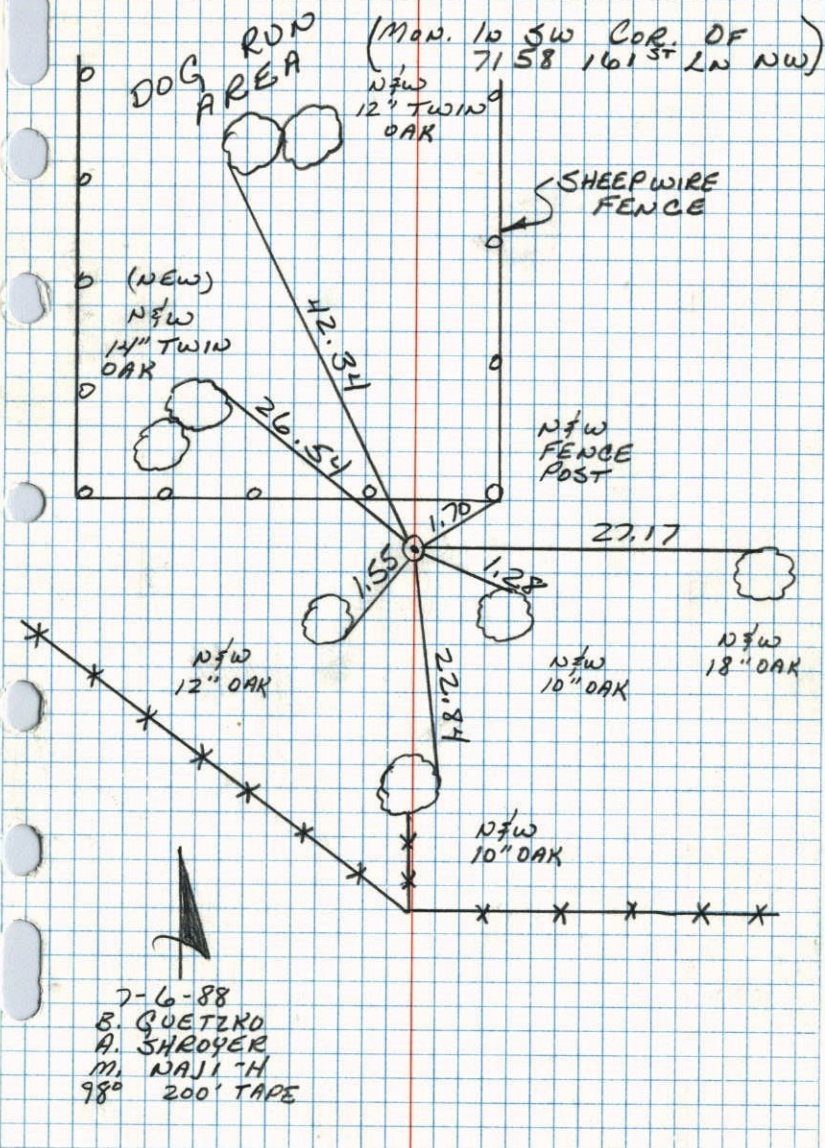 (MON. IN SW COR. OF
7158 161ST LN NW)
DOG RUN
AREA
N&W
12" TWIN
OAK
SHEEPWIRE
FENCE
(NEW)
N&W
14" TWIN
OAK
42.34
26.54
N&W
FENCE
POST
1.70
27.17
1.55
1.28
N&W
12" OAK
N&W
10" OAK
N&W
18" OAK
22.84
N&W
10" OAK
7-6-88
B. GUETZKO
A. SHROYER
M. NAJI-H
98° 200' TAPE